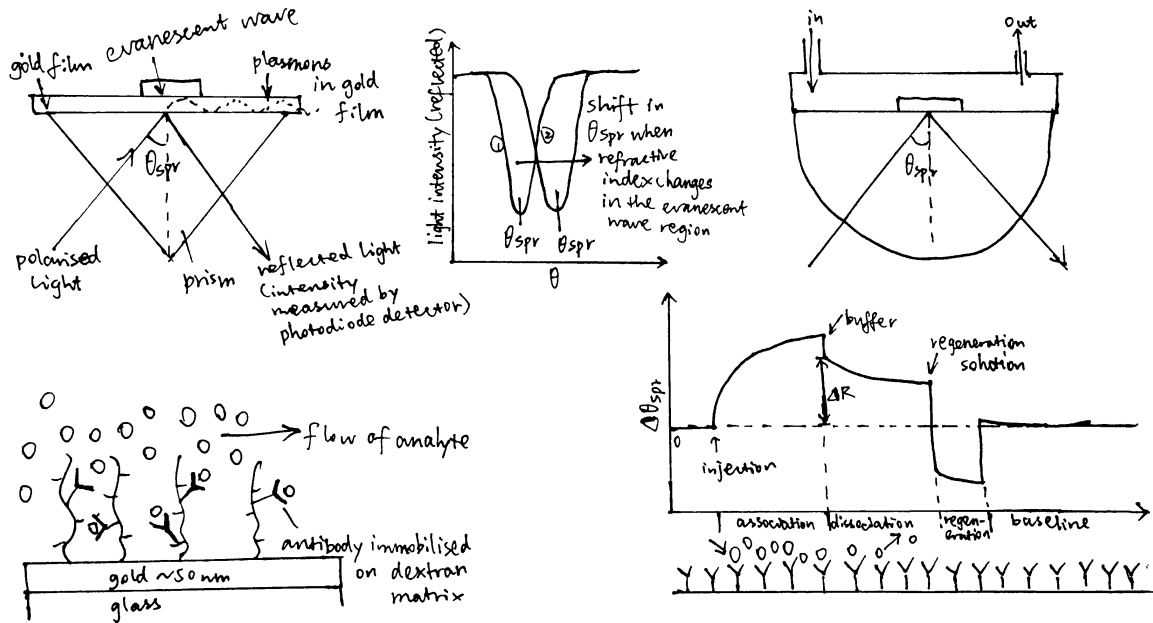 evanescent wave
gold film
plasmons
in gold
film
θspr
polarised
light
prism
reflected light
(intensity
measured by
photodiode detector)
light intensity (reflected)
①
②
shift in
θspr when
refractive
index changes
in the evanescent
wave region
θspr
θspr
θ
in
out
θspr
flow of analyte
antibody immobilised
on dextran
matrix
gold ~50 nm
glass
Δθspr
0
buffer
regeneration
solution
ΔR
injection
association
dissociation
regen-
eration
baseline